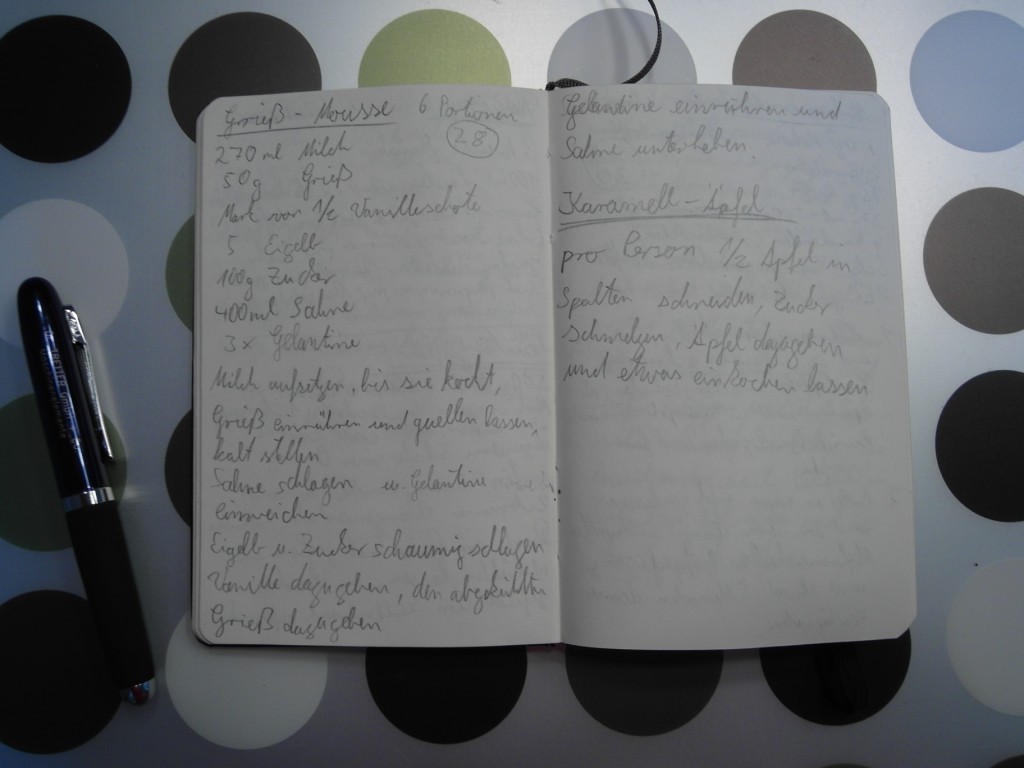 Grieß - Mousse 6 Portionen
28
270 ml Milch
50g Grieß
Mark von 1/2 Vanilleschote
5 Eigelb
100g Zucker
400ml Sahne
3x Gelantine
Milch aufsetzen, bis sie kocht,
Grieß einrühren und quellen lassen,
kalt stellen
Sahne schlagen u. Gelantine
einweichen
Eigelb u. Zucker schaumig schlagen
Vanille dazugeben, den abgekühlten
Grieß dazugeben
Gelantine einrühren und
Sahne unterheben.
Karamell - Äpfel
pro Person 1/2 Apfel in
Spalten schneiden, Zucker
schmelzen, Äpfel dazugeben
und etwas einkochen lassen